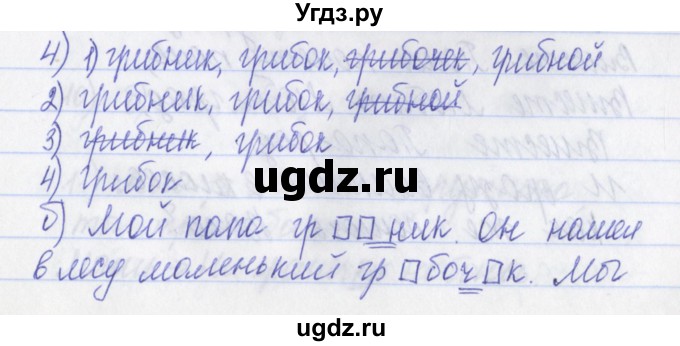 Угдз.ру
4) 1) грибник, грибок, грибочек, грибной
2) грибник, грибок, грибной
3) грибник, грибок
4) грибок
ugdz.ru
б) Мой папа гр□□ник. Он нашел
в лесу маленький гр□боч□к. Мы
ugdz.ru